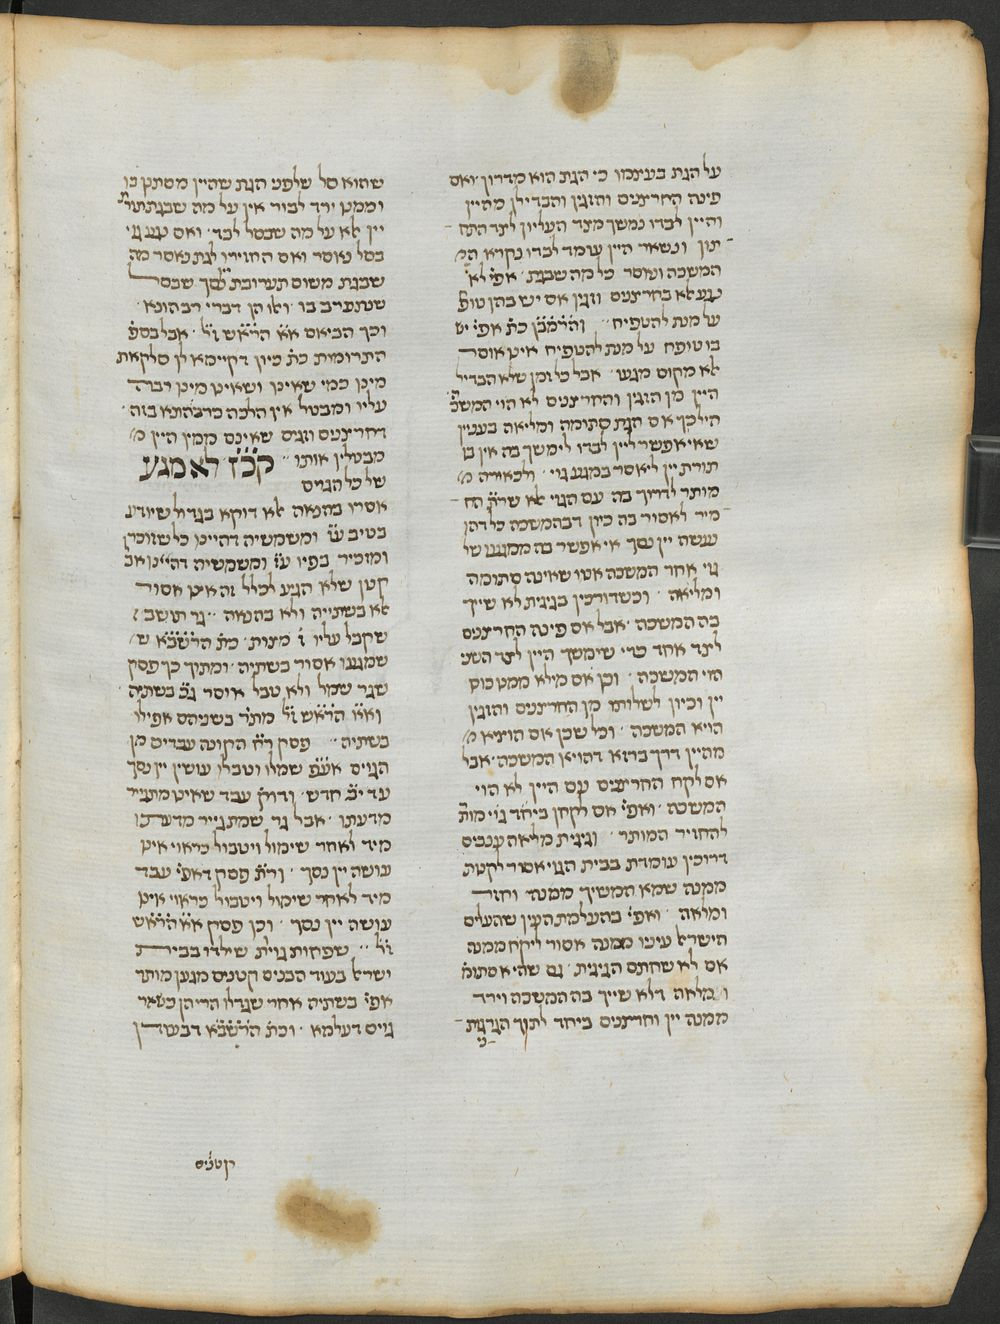 על הגת בעינמו כי הגת הוא מדרון ואם
פינה החרצנים והזגין והבדילן מהיין
והיין לבדו נמשך מצד העליון לצד התח
תון ונשאר היין עומד לבדו נקרא המ
המשכה ונאסר כל מה שבגת אפי' לא
נגע אלא בחרצנים וזגין אם יש בהן טופח
על מנת להטפיח והרמב"ן כת' אפי' יש
בו טופח על מנת להטפיח אינו אוסר
אלא מקום מגעו אבל כל זמן שלא הבדיל
היין מן הזגין והחרצנים לא הוי המשכ'
הילכך אם הגת סתומה ומליאה בענין
שאי אפשר ליין לבדו לימשך בה אין בו
תורת יין ליאסר במגע גוי ולכאורה מ
מותר לדרוך בה עם הגוי אלא שר"ת הח
מיר לאסור בה כיון דבהמשכה כל דהו
נעשה יין נסך אי אפשר בה ממגעו של
גוי אחר המשכה אטו שאינה סתומה
ומליאה וכשדורכין בגיגית לא שייך
בה המשכה אבל אם פינה החרצנים
לצד אחד כדי שימשך היין לצד השני
הוי המשכה וכן אם מילא ממנו כוס
יין וכיון לשלותו מן החרצנים והזגין
הויא המשכה וכל שכן אם הוציא מ
מהיין דרך ברזא דהויא המשכה אבל
אם לקח החרצנים עם היין לא הוי
המשכה ואפי' אם לקחן ביחד גוי מות'
להחזיר המותר וגיגית מלאה ענבים
דרוכין עומדת בבית הגוי אסור לקנות
ממנה שמא המשיך ממנה וחזר
ומלאה ואפי' בהעלמת העין שהעלים
הישראל עיניו ממנה אסור ליקח ממנה
אם לא שחתם הגיגית גם שהיא סתומ'
ומלאה דלא שייך בה המשכה וירד
ממנה יין וחרצנים ביחד לתוך הגרגת
ני
שהוא סל שלפני הגת שהיין מסתנן בו
וממנו ירד לבור אין על מה שבגת תור'
יין אלא על מה שבסל לבד ואם נגע גוי
בסל נאסר ואם החזירו לגת נאסר מה
שבגת משום תערובת יין נסך שבסל
שנתערב בו ואלו הן דברי רב הונא
וכך הביאם א"א הרא"ש ז"ל אבל בספ'
התרומות כת' כיון דקיימא לן סלקאת
מינו כמי שאינו ושאינו מינו רבה
עליו ומבטל אין הלכה כרב הונא בזה
דחרצנים וזגים שאינם ממין היין מ
מבטלין אותו קכ"ז לא מגע
של כל הגוים
אסרו בהנאה אלא דוקא בגדול שיודע
בטיב ע"ז ומשמשיה דהיינו כל שזוכרין
ומזכיר בפיו ע"ז ומשמשיה דהיינו אב
קטן שלא הגיע לכלל זה אינו אסור
אלא בשתייה ולא בהנאה גר תושב
שקבל עליו ז' מצות כת' הרשב"א ש
שמגעו אסור בשתיה ומתוך כך פסק
שגר שמל ולא טבל אוסר ג"כ בשתיה
וא"א הרא"ש ז"ל מת'ר בשניהם אפילו
בשתיה פסק ר"ח הקונה עבדים מן
הגוים אע"פ שמלו וטבלו עושין יין נסך
עד י"ב חדש ודוק' עבד שאינו מתגייר
מדעתו אבל גר שמתגייר מדעתו
מיד לאחר שימול ויטבול כראוי אינו
עושה יין נסך ור"ת פסק דאפי' עבד
מיד לאחר שימול ויטבול כראוי אינו
עושה יין נסך וכן פסק א"א הרא"ש
ז"ל שפחות גוית שילדו בבית
ישראל בעוד הבנים קטנים מגען מותר
אפי' בשתיה אחר שגדלו הרי הן כשאר
גוים דעלמא וכת' הרשב"א דבעודן
קטנים